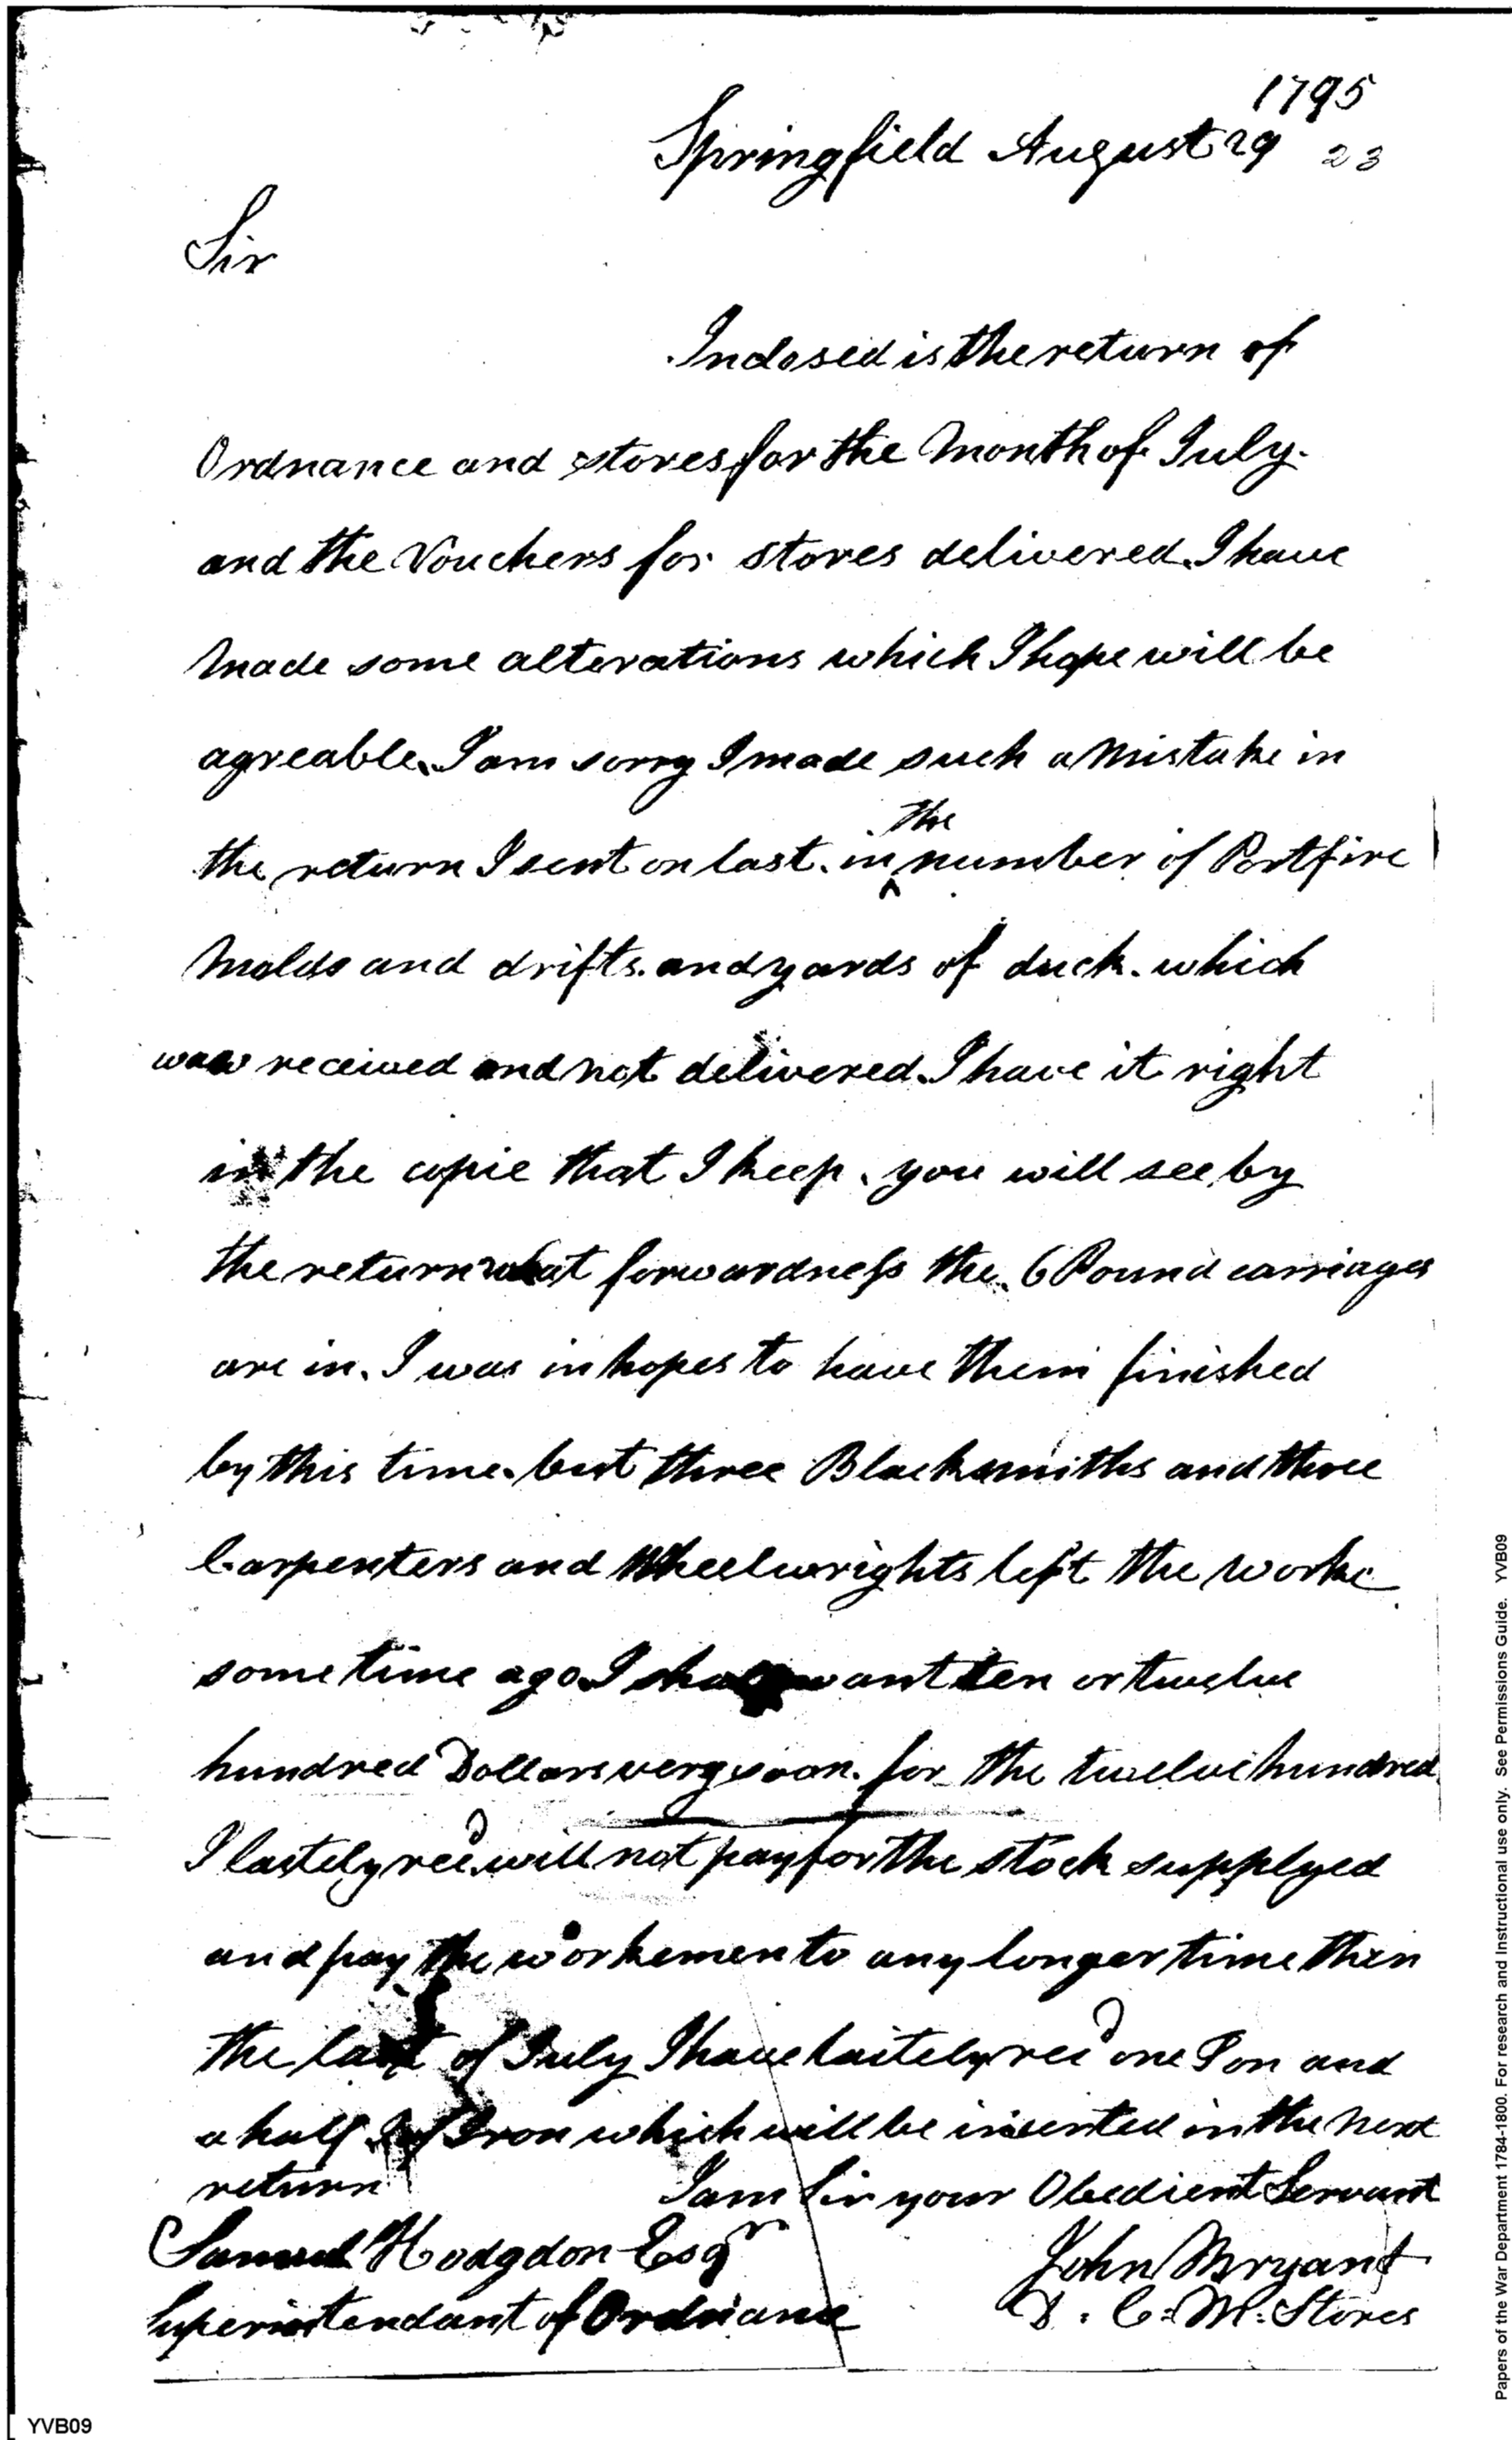 1795
Springfield August 29 23
Sir
Inclosed is the return of
Ordnance and stores for the Month of July.
and the Vouchers for stores delivered. I have
Made some alterations which I hope will be
agreable. I am sorry I made such a Mistake in
the
the return I sent on last. in ^ number of Portfire
Molds and drifts. and yards of duck. which
was received and not delivered. I have it right
in the copie that I keep. you will see by
the return what forwardness the 6 Pound carriages
are in. I was in hopes to have them finished
by this time. but three Blacksmiths and three
Carpenters and Wheelwrights left the worke
some time ago. I shall want ten or twelve
hundred Dollars very soon. for the twelve hundred
I lastely recd. will not pay for the stock supplyed
and pay the workemen to any longer time then
the last of July I have laitely recd one Ton and
a half of Iron which will be inserted in the next
return
I am Sir your Obedient Servant
Samuel Hodgdon Esqr
John Bryant
Superintendant of Ordnance
D. C. M. Stores
YVB09
Papers of the War Department 1784-1800. For research and Instructional use only. See Permissions Guide. YVB09